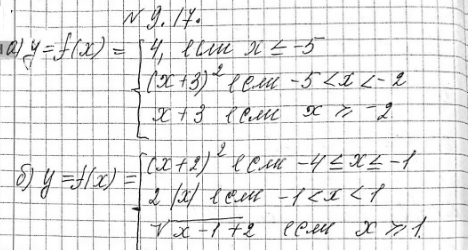 № 9.17.
а) y = f(x) = { 4, если x ≤ -5
(x+3)² если -5 < x < -2
x+3 если x ≥ -2
б) y = f(x) = { (x+2)² если -4 ≤ x ≤ -1
2|x| если -1 < x < 1
√x-1+2 если x ≥ 1.